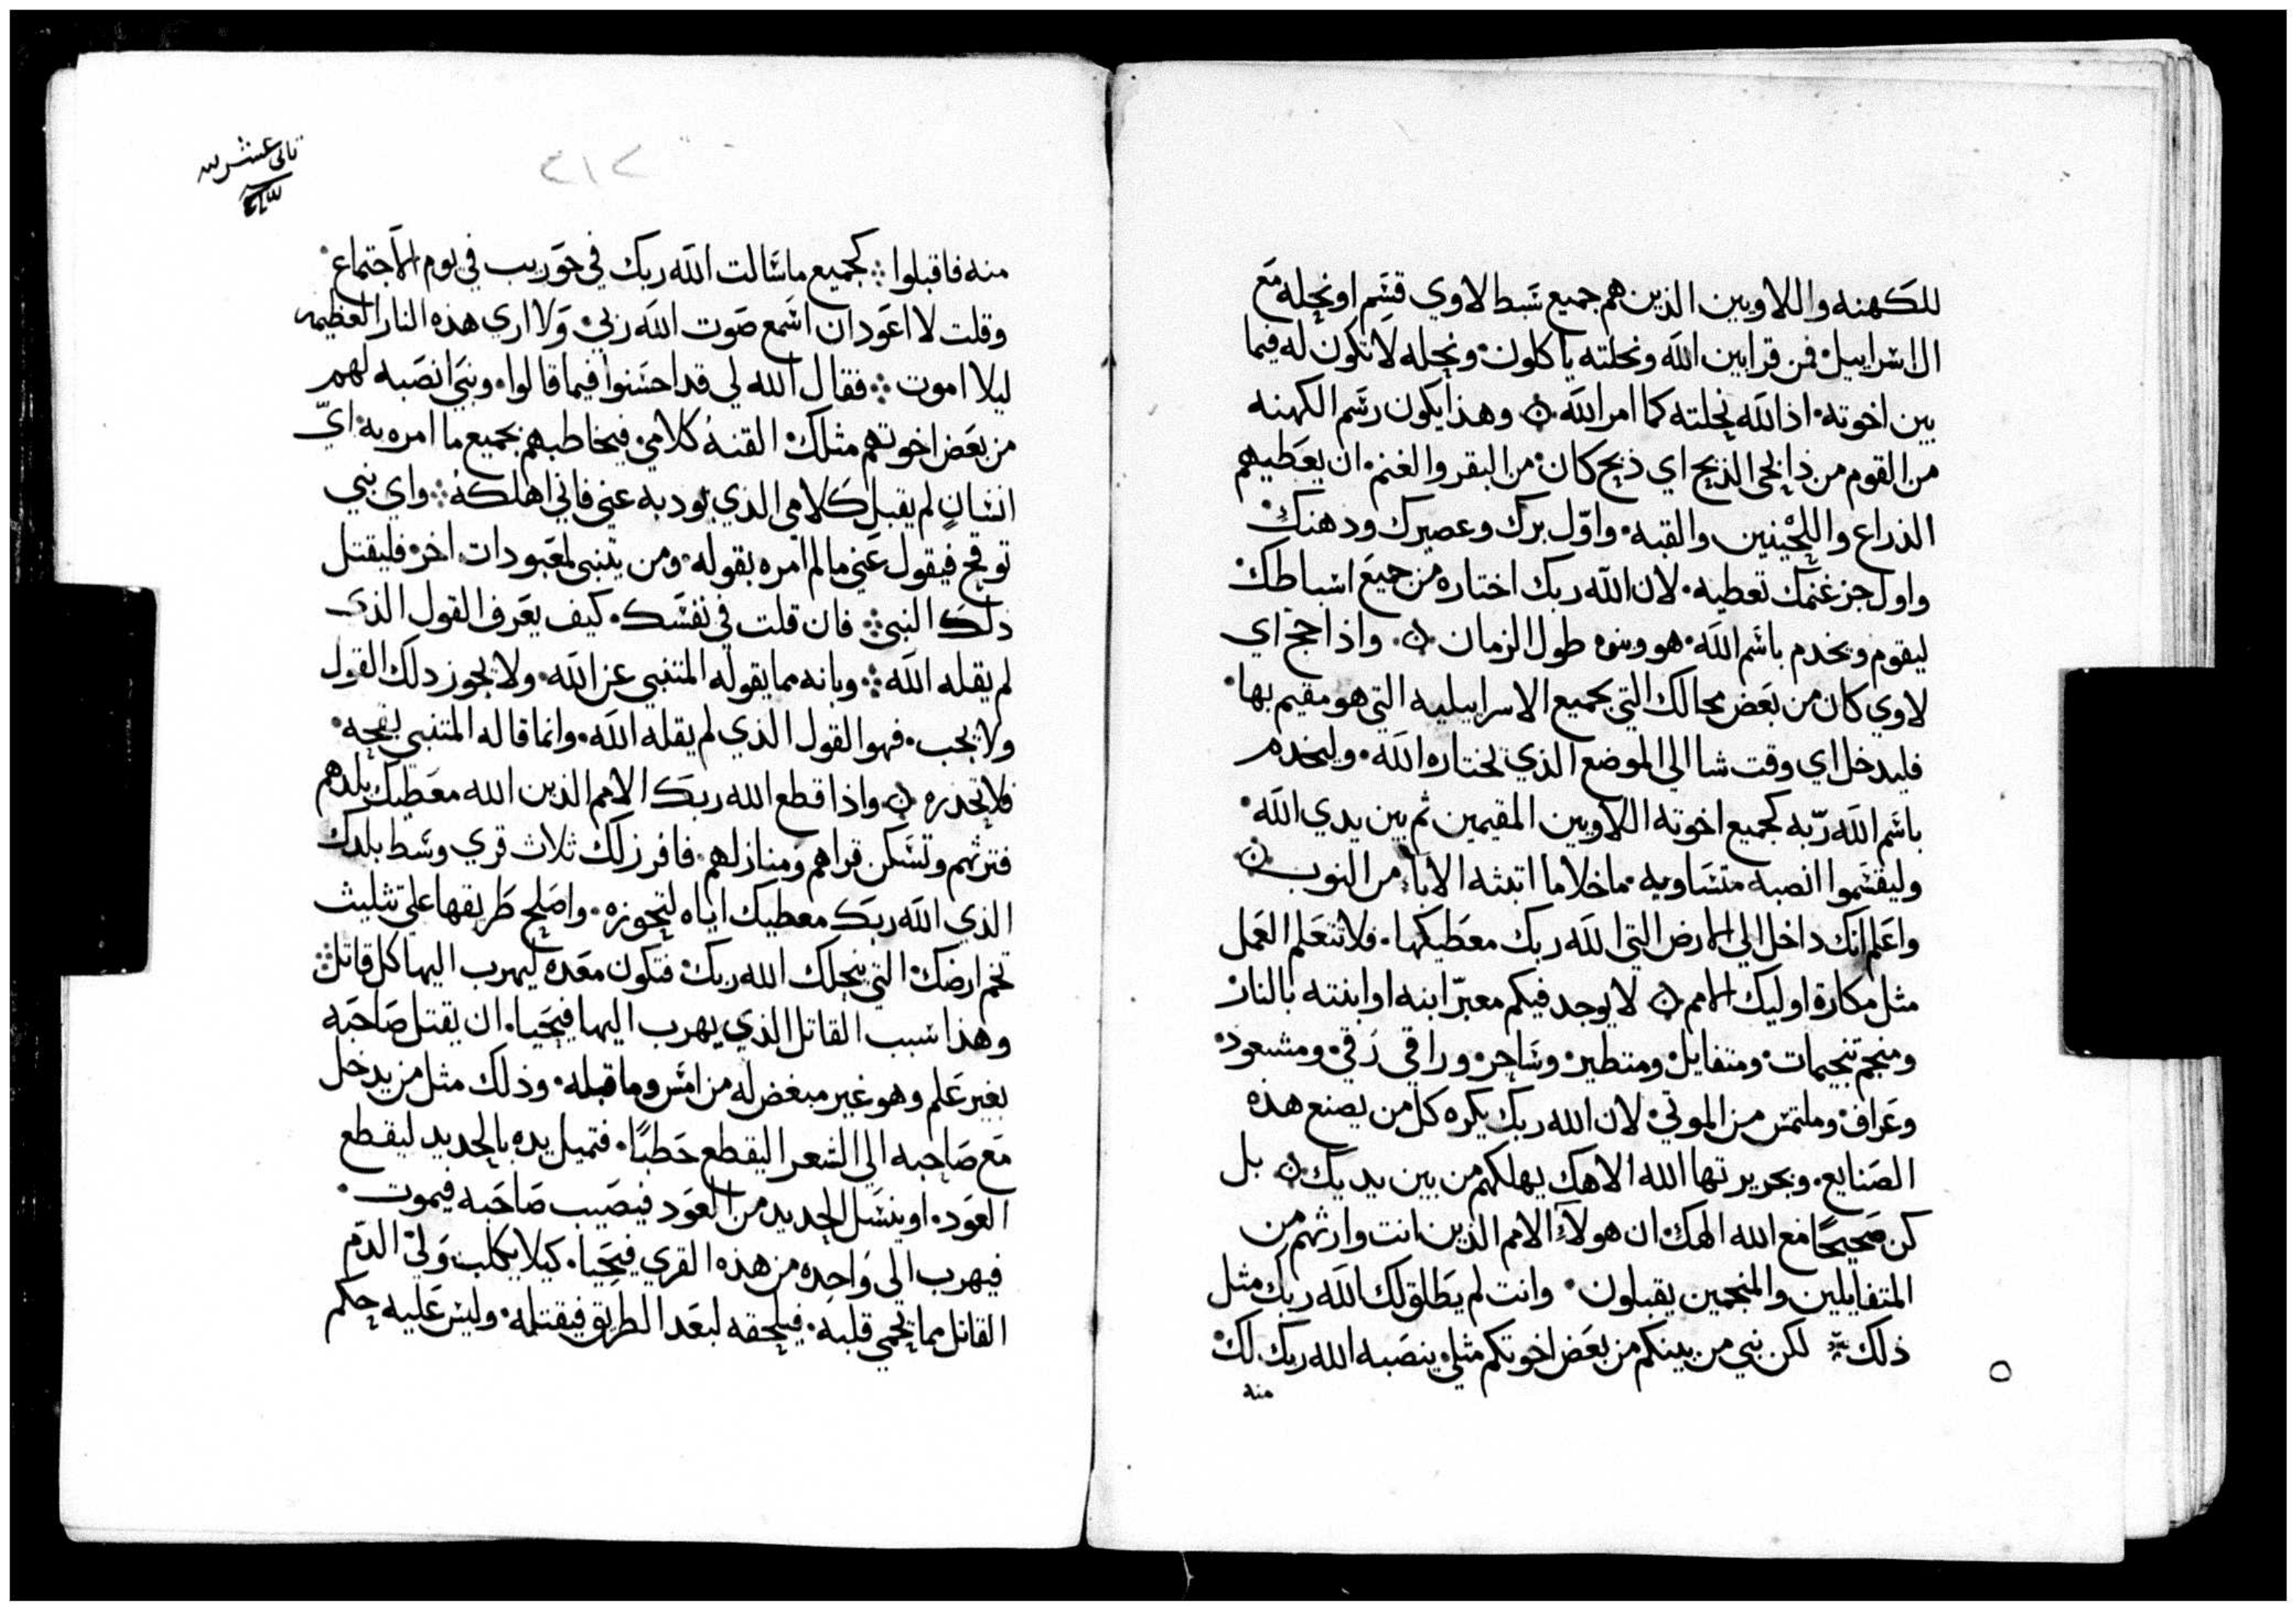 للكهنه واللاويين الذين هم جميع سبط لاوي قسم او نحله مع
ال اسراييل فمن قرابين الله ونحلته ياكلون ونحله لا تكون له فيما
بين اخوته اذ الله نحلته كما امر الله وهذا يكون رسم الكهنه
من القوم من ذابحي الذبح اي ذبح كان من البقر والغنم ان يعطيهم
الذراع واللحيين والقبه واول برك وعصيرك ودهنك
واول جز غنمك تعطيه لان الله ربك اختاره من جميع اسباطك
ليقوم ويخدم باسم الله هو وبنوه طول الزمان واذا حج اي
لاوي كان من بعض محالك التي بجميع الاسراييليه التي هو مقيم بها
فليدخل اي وقت شا الي الموضع الذي يختاره الله وليخدم
باسم الله ربه كجميع اخوته اللاويين المقيمين ثم بين يدي الله
وليقسموا انصبه متساويه ما خلا ما اتبثه الابا من النوب
واعلم انك داخل الي الارض التي الله ربك معطيكها فلا تتعلم العمل
مثل مكاره اوليك الامم لا يوجد فيكم معبر ابنه او ابنته بالنار
ومنجم تنجيمات ومتفايل ومتطير وساحر وراقي رقي ومشعوذ
وعراف وملتمس من الموتي لان الله ربك يكره كل من يصنع هذه
الصنايع وبجريرتها الله الاهك يهلكهم من بين يديك بل
كن صحيحا مع الله الهك ان هولاء الامم الذين انت وارثهم من
المتفايلين والمنجمين يقبلون وانت لم يطلق لك الله ربك مثل
ذلك لكن نبي من بينكم من بعض اخوتكم مثلي ينصبه الله ربك لك
منه
ثاني عشر
منه فاقبلوا كجميع ما سالت الله ربك في حوريب في يوم الاجتماع
وقلت لا اعود ان اسمع صوت الله ربي ولا اري هذه النار العظيمه
ليلا اموت فقال الله لي قد احسنوا فيما قالوا ونبي انصبه لهم
من بعض اخوتهم مثلك القنه كلامي فيخاطبهم بجميع ما امره به اي
انسان لم يقبل كلامي الذي يود به عني فاني اهلكه واي نبي
توقح فيقول عني ما لم امره بقوله ومن يتنبي لمعبودات اخر فليقتل
ذلك النبي فان قلت في نفسك كيف يعرف القول الذي
لم يقله الله وبانه مما يقوله المتنبي عن الله ولا يجوز ذلك القول
ولا يجب فهو القول الذي لم يقله الله وانما قاله المتنبي بقحه
فلا تحذره واذا قطع الله ربك الامم الذين الله معطيك بلدهم
فترثهم وتسكن قراهم ومنازلهم فافرز لك ثلاث قري وسط بلدك
الذي الله ربك معطيك اياه لتحوزه واصلح طريقها علي تثليث
تخم ارضك التي ينحلك الله ربك فتكون معده ليهرب اليها كل قاتل
وهذا سبب القاتل الذي يهرب اليها فيحيا ان يقتل صاحبه
بغير علم وهو غير مبغض له من امس وما قبله وذلك مثل من يدخل
مع صاحبه الي الشعرا ليقطع حطبا فتميل يده بالحديد ليقطع
العود او ينسل الحديد من العود فيصيب صاحبه فيموت
فيهرب الي واحده من هذه القري فيحيا كيلا يكلب ولي الدم
القاتل مما يحمي قلبه فيلحقه لبعد الطريق فيقتله وليس عليه حكم